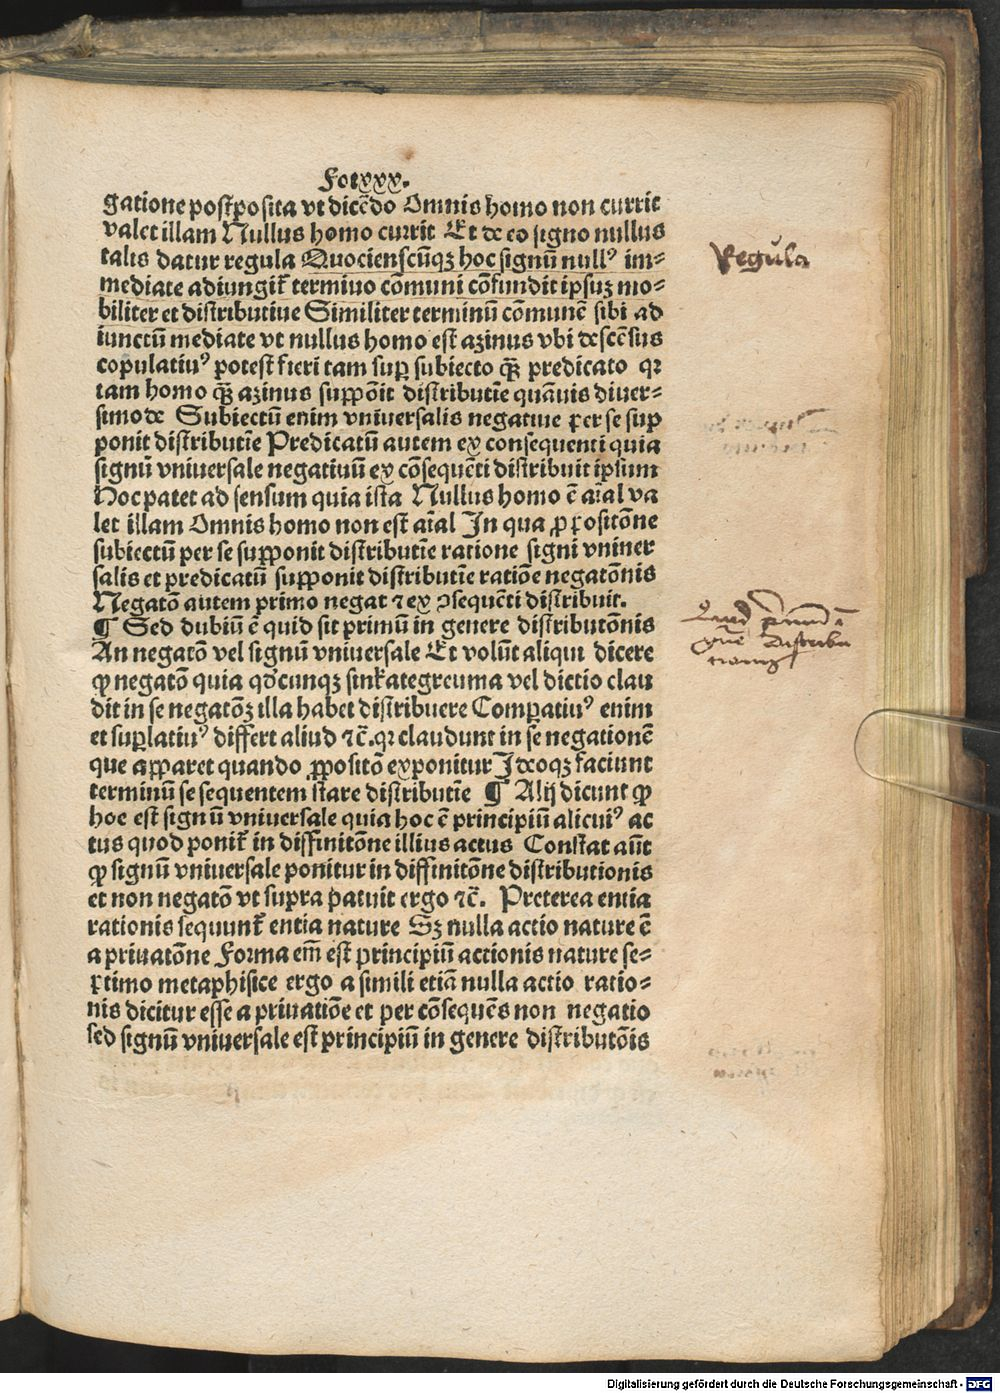 Fo. xxx.
gatione postposita vt dicēdo Omnis homo non currit
valet illam Nullus homo currit Et de eo signo nullus
talis datur regula Quociensūqꝫ hoc signū nullꝰ im-
mediate adiungit᷑ termiuo cōmuni cōfundit ipsuꝫ mo-
biliter et distributiue Similiter terminū cōmunē sibi ad
iunctū mediate vt nullus homo est azinus vbi descēsus
copulatiuꝰ potest fieri tam suꝑ subiecto qꝫ̄ predicato qꝛ
tam homo qꝫ̄ azinus suppōit distributīe quāuis diuer-
simode Subiectū enim vniuersalis negatiue per se sup
ponit distributīe Predicatū autem ex consequenti quia
signū vniuersale negatiuū ex cōsequēti distribuit ipsum
Hoc patet ad sensum quia ista Nullus homo ē aīal va
let illam Omnis homo non est aīal In qua ꝓpositōne
subiectū per se supponit distributīe ratione signi vniuer
salis et predicatū supponit distributīe ratiōe negatōnis
Negatō autem primo negat ⁊ ex ↄsequēti distribuit.
¶ Sed dubiū ē quid sit primū in genere distributōnis
An negatō vel signū vniuersale Et volūt aliqui dicere
ꝙ negatō quia qdcunqꝫ sinkategreuma vel dictio clau
dit in se negatōꝫ illa habet distribuere Comꝑatiuꝰ enim
et suꝑlatiuꝰ differt aliud ⁊c̄. qꝛ claudunt in se negationē
que apparet quando ꝓpositō exponitur Ideoqꝫ faciunt
terminū se sequentem stare distributīe ¶ Alij dicunt ꝙ
hoc est signū vniuersale quia hoc ē principiū alicuiꝰ ac
tus quod ponit᷑ in diffinitōne illius actus Constat aūt
ꝙ signū vniuersale ponitur in diffinitōne distributionis
et non negatō vt supra patuit ergo ⁊c̄. Preterea entia
rationis sequunt᷑ entia nature Sꝫ nulla actio nature ē
a priuatōne Forma em̄ est principiū actionis nature se-
ptimo metaphisice ergo a simili etiā nulla actio ratio-
nis dicitur esse a priuatiōe et per cōsequēs non negatio
sed signū vniuersale est principiū in genere distributōis
Regula
Quid primū ī
gn̄e distribu
tionis
Digitalisierung gefördert durch die Deutsche Forschungsgemeinschaft - DFG